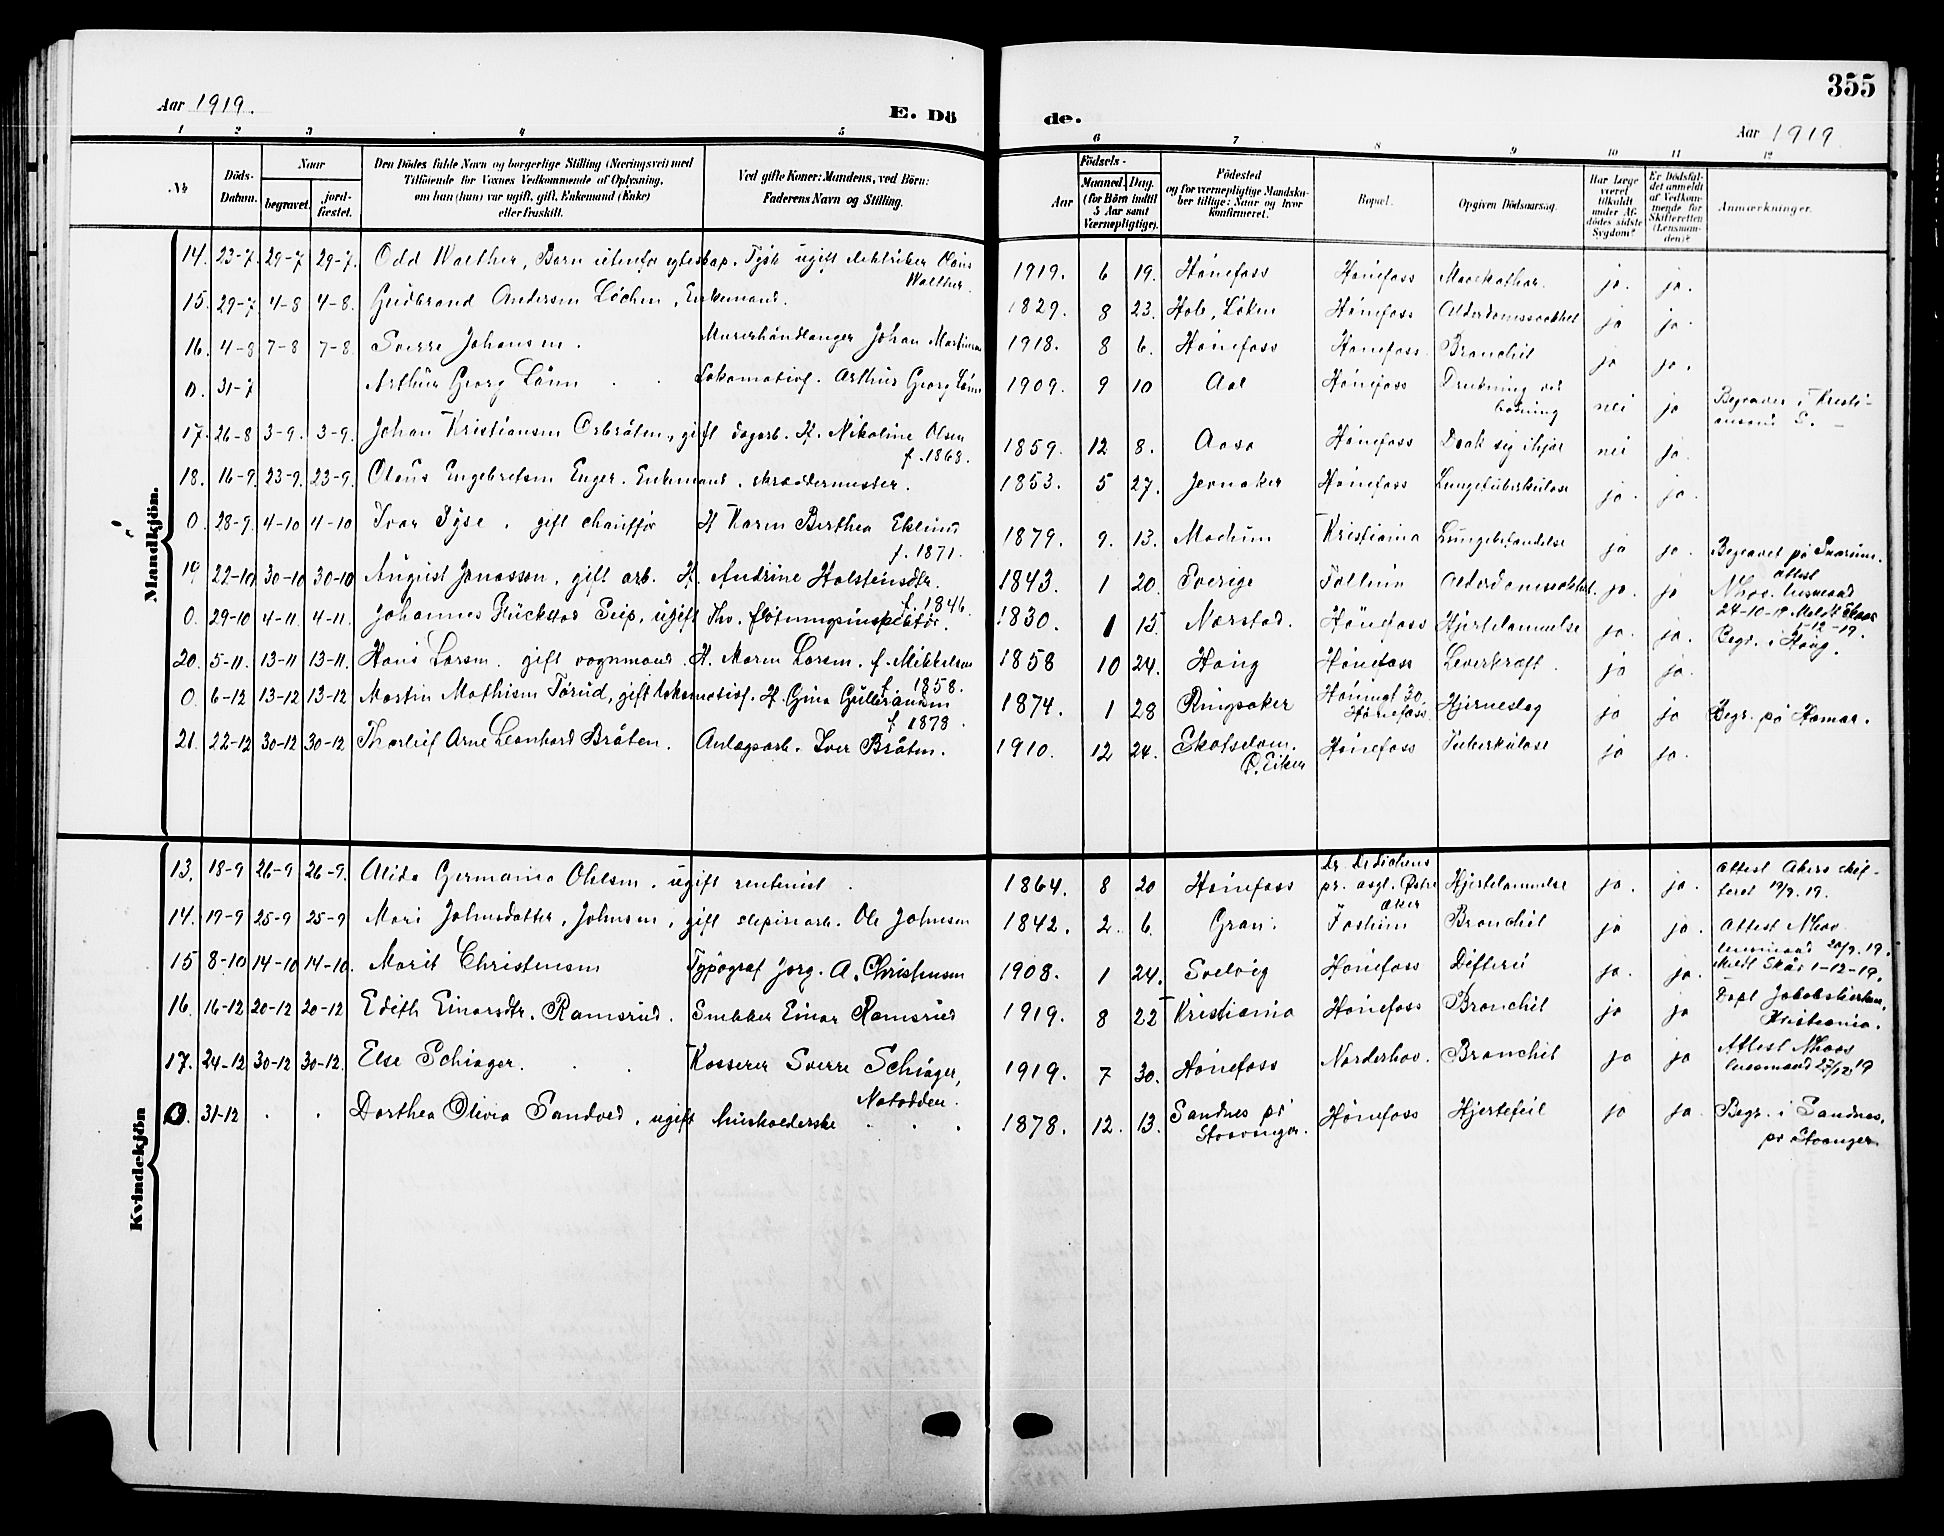 355
Aar 1919.
E. Dö
de.
Aar 1919
1 2 3 4 5 6 7 8 9 10 11 12
№
Döds-
Datum.
Naar
begravet.
jord-
fæstet.
Den Dödes fulde Navn og borgerlige Stilling (Næringsvei) med
Tilföiende for Voxnes Vedkommende af Oplysning,
om han (hun) var ugift, gift, Enkemand (Enke)
eller fraskilt.
Ved gifte Koner: Mandens, ved Börn:
Faderens Navn og Stilling.
Aar
Födsels-
Maaned. Dag.
(for Börn indtil
5 Aar samt
Værnepligtige).
Födested
og for værnepligtige Mandska-
ber tillige: Naar og hvor
konfirmeret.
Bopæl.
Opgiven Dödsaarsag.
Har Læge
været
tilkaldt
under Af-
dödes sidste
Sygdom?
Er Dödsfal-
det anmeldt
af Vedkom-
mende for
Skifteretten
(Lensman-
den)?
Anmærkninger.
Mandkjön.
14. 23-7. 29-7 29-7. Odd Walther, Barn utenfor egteskap. Tysk ugift elektriker Claus Walther. 1919. 6 19. Hönefoss Hönefoss ja. ja.
15. 29-7 4-8 4-8. Gudbrand Andersen Löchen, Enkemand. 1829. 8 23. Hole, Löken Hönefoss Alderdomssvakhet ja ja.
16. 4-8 7-8 7-8. Sverre Johansen. Murerhåndlanger Johan Martinsen 1918. 8 6. Hönefoss Hönefoss Bronchit ja ja.
0. 31-7 Arthur Georg Lönn Lokomotivf. Arthur Georg Lönn 1909. 9 10 Aal Hönefoss Drukning ved badning nei ja Begraves i Kristi-
ansand S. -
17. 26-8 3-9. 3-9. Johan Kristiansen Orbråten, gift dagarb. H. Nikoline Olsen
f. 1868. 1859. 12 8. Aasa Hönefoss Drak sig ihjæl nei ja.
18. 16-9. 23-9. 23-9. Olaus Engebretsen Enger. Enkemand, skræddermester. 1853. 5 27. Jevnaker Hönefoss Lungetuberkulose ja. ja.
0. 28-9. 4-10 4-10 Ivar Dyse, gift chauffør H. Karen Berthea Eklund
f. 1871. 1879. 9. 13. Modum Kristiania Lungebetændelse ja ja. Begravet på Snarum.
19 22-10 30-10 30-10 August Jonassen, gift arb. H. Andrine Halstensdtr.
f. 1846. 1843. 1 20. Sverige Follum Alderdomssvakhet ja. ja attest
Nhov. lensmand
24-10-19 Meldt Skar
1-12-19.
0. 29-10 4-11. 4-11. Johannes Flückstad Seip, ugift Thv. flötningsinspektör. 1830. 1 15. Næstad. Hönefoss Hjertelammelse ja. ja. Begr. i Haug.
20. 5-11. 13-11 13-11. Hans Larsen. gift vognmand. H. Maren Larsen. f. Mikkelsen
f. 1858. 1858 10 24. Haug Hönefoss Leverkræft. ja ja.
0. 6-12 13-12 13-12 Martin Mathisen Törud, gift lokomotivf. H. Gina Gulbransen
f. 1878. 1874. 1 28 Ringsaker Hönengt 30
Hönefoss Hjerneslag ja ja Begr. på Hamar.
21. 22-12 30-12 30-12 Thorleif Arne Leonhard Bråten. Anlægsarb. Iver Bråten. 1910. 12 24. Skotselven.
Ö. Eiker Hönefoss Tuberkulose ja ja.
Kvindekjön
13. 18-9 26-9 26-9. Alida Germania Ohlsen, ugift rentenist. 1864. 8 20 Hönefoss Dr. Dedichens
pr. asyl. Østre
Aker Hjertelammelse ja. ja. Attest Akers skif-
teret 19/9. 19.
14. 19-9 25-9 25-9 Mari Johnsdatter, Johnsen, gift sliperiarb. Ole Johnsen 1842. 2. 6. Gran. Fossum Bronchit ja ja. Attest Nhov.
lensmand 20/9. 19.
meldt Skår 1-12-19.
15 8-10 14-10 14-10. Marit Christensen Typograf Jørg. A. Christensen 1908. 1 24. Svelvig Hönefoss Difteri ja. ja.
16. 16-12 20-12 20-12 Edith Einarsdtr. Ramsrud. Snekker Einar Ramsrud 1919. 8 22 Kristiania Hönefoss Bronchit ja ja Döpt Jakobskirken,
Kristiania.
17. 24-12 30-12 30-12. Else Schiager. Kasserer Sverre Schiager,
Notodden. 1919. 7 30. Hönefoss Norderhov. Bronchit ja ja Attest Nhovs
lensmand 27/12 19
0. 31-12 Dorthea Olivia Sandved, ugift Husholderske 1878. 12. 13. Sandnes pr
Stavanger. Hönefoss Hjertefeil ja ja Begr. i Sandnes.
pr Stavanger